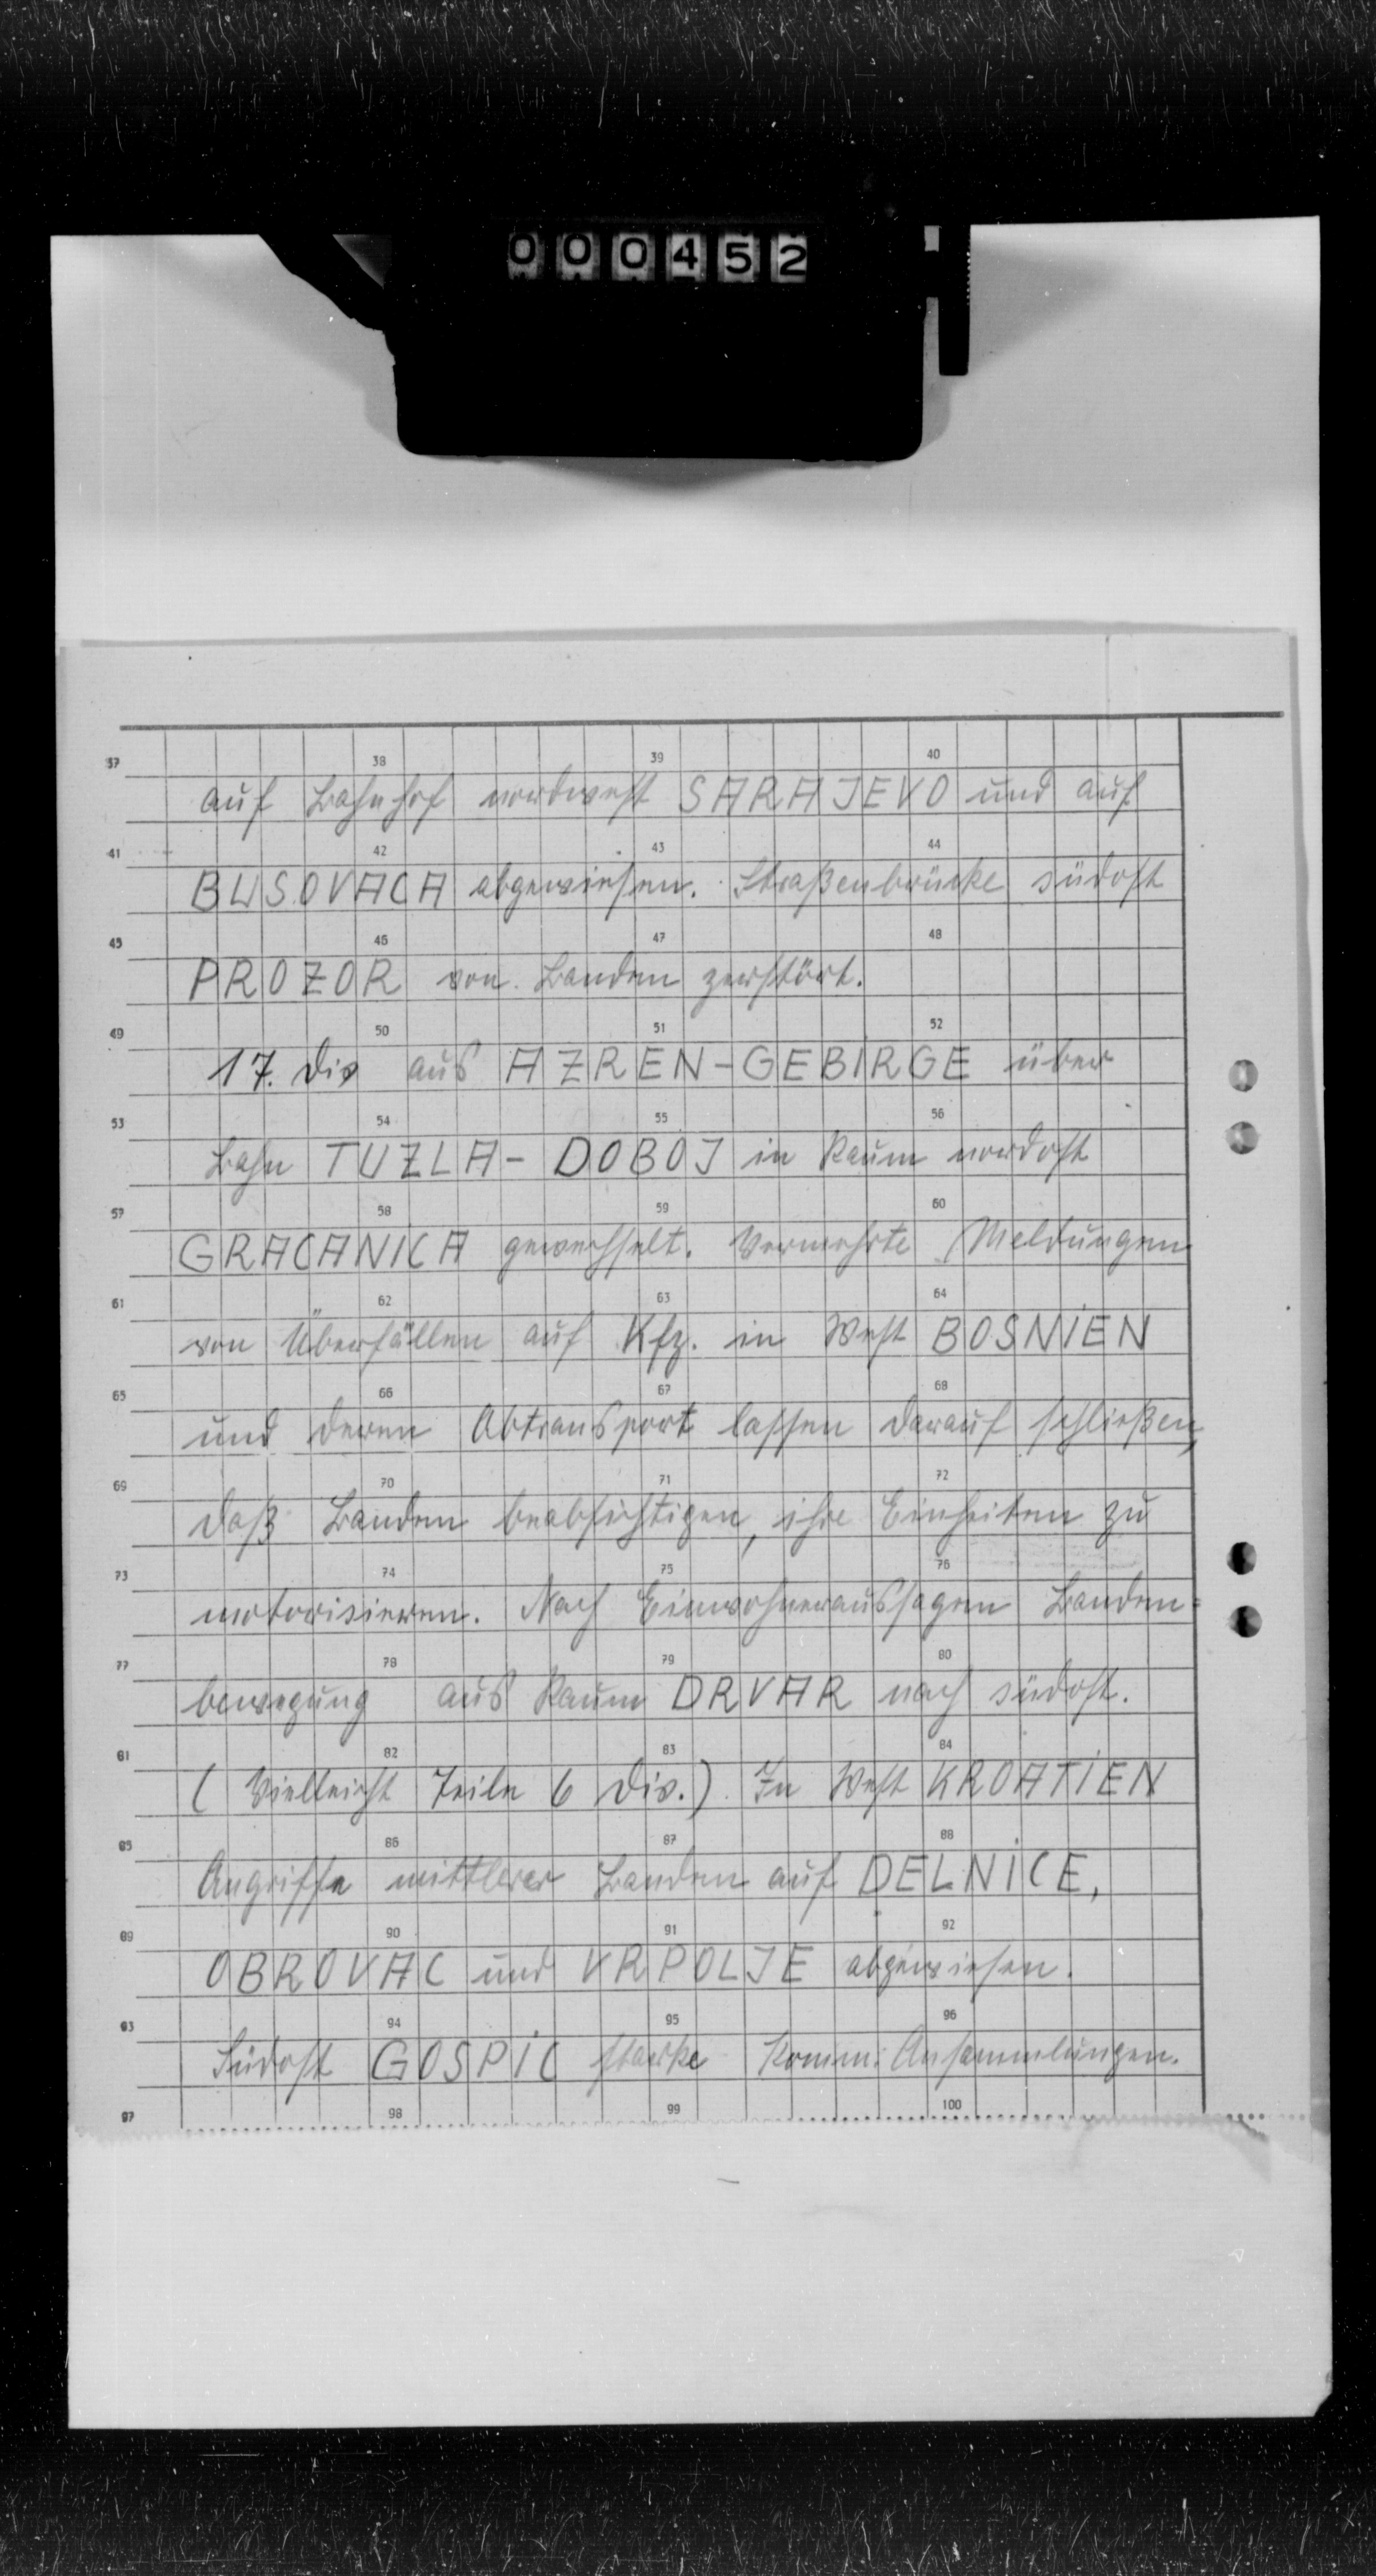 000452
37 38 39 40
auf Bahnhof nordwest SARAJEVO und auf
41 42 43 44
BUSOVACA abgewiesen. Straßenbrücke südost
45 46 47 48
PROZOR von Banden zerstört.
49 50 51 52
17. Div aus AZREN-GEBIRGE über
53 54 55 56
Bahn TUZLA-DOBOJ in Raum nordost
57 58 59 60
GRACANICA gewechselt. Vermehrte Meldungen
61 62 63 64
von Überfällen auf Kfz. in West BOSNIEN
65 66 67 68
und deren Abtransport lassen darauf schließen,
69 70 71 72
daß Banden beabsichtigen, ihre Einheiten zu
73 74 75 76
motorisieren. Nach Einwohneraussagen Banden=
77 78 79 80
bewegung aus Raum DRVAR nach südost.
81 82 83 84
(Vielleicht Teile 6 Div.) In West KROATIEN
85 86 87 88
Angriffe mittlerer Banden auf DELNICE,
89 90 91 92
OBROVAC und VRPOLJE abgewiesen.
93 94 95 96
Südost GOSPIC starke Komm. Ansammlungen.
97 98 99 100